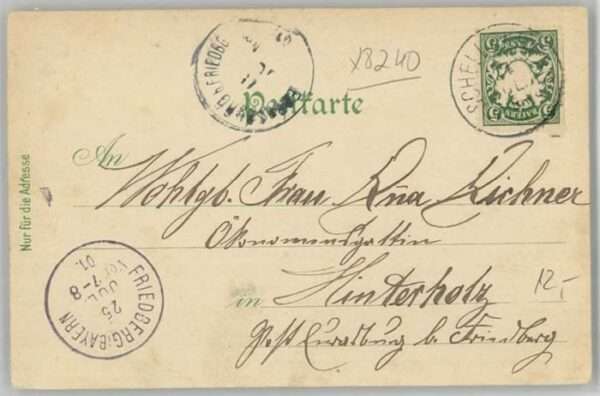 X8240
Postkarte
SCHELL
BAYERN
5
An
Wohlgb. Frau Kuna Kichner
Ökonomensgattin
in Hinterholz
Post Eurasburg b. Friedberg
12,-
Nur für die Adresse
FRIEDBERG (BAYERN
25
JUL
Vor 7-8
01.
FRIEDBE